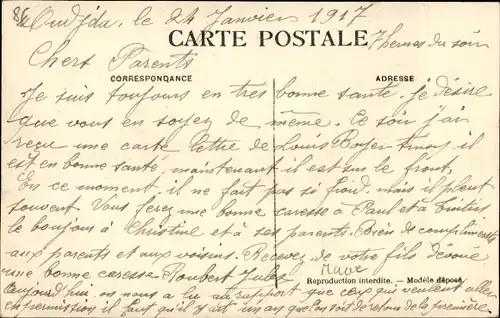 Oudjda, le 24 Janvier 1917
CARTE POSTALE
7 heures du soir
Chers Parents
CORRESPONDANCE
ADRESSE
Je suis toujours en très bonne santé. je désire
que vous en soyez de même. Ce soir j'ai
reçu une carte lettre de Louis Boyer il
est en bonne santé, maintenant il est sur le front.
En ce moment, il ne fait pas si froid, mais il pleut
souvent. Vous ferez une bonne caresse à Paul et à
le bonjour à Christine et à ses parents. Bien de compliments
aux parents et aux voisins. Recevez de votre fils dévoué
une bonne caresse Roubert Jules
Reproduction interdite. — Modèle déposé.
aujourd'hui on nous a lu au rapport que ceux qui veulent aller
en permission il faut qu'il y est un an que l'on soit de retour de la première.